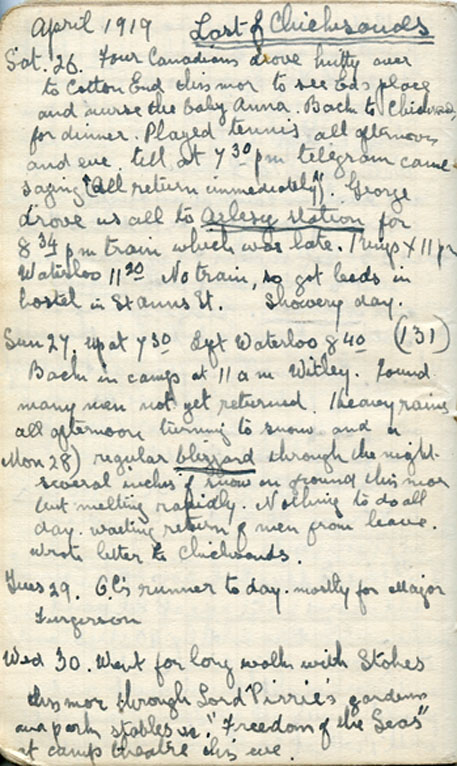 April 1919 Last of Chicksands
Sat. 26. Four Canadians drove hutty over
to Cotton End this mor to see Eds place
and nurse the baby Anna. Back to Chicksands
for dinner. Played tennis all afternoon
and eve. till at 7 30 pm telegram came
saying "All return immediately". George
drove us all to Arlesey station for
8 34 pm train which was late. Kings X 11 pm
Waterloo 11 20 No train, so got beds in
hostel in St Anns St. Showery day.
Sun 27. up at 7 30 Left Waterloo 8 40 (131)
Back in camp at 11 am Witley. Found
many men not yet returned. Heavy rains
all afternoon turning to snow and a
Mon 28) regular blizzard through the night.
several inches of snow on ground this mor
but melting rapidly. Nothing to do all
day. waiting return of men from leave.
wrote letter to Chicksands.
Tues 29. GC's runner to day. mostly for Major
Furgerson
Wed 30. Went for long walk with Stokes
this mor through Lord Pirrie's gardens
and park stables etc. "Freedom of the Seas"
at camp theatre this eve.